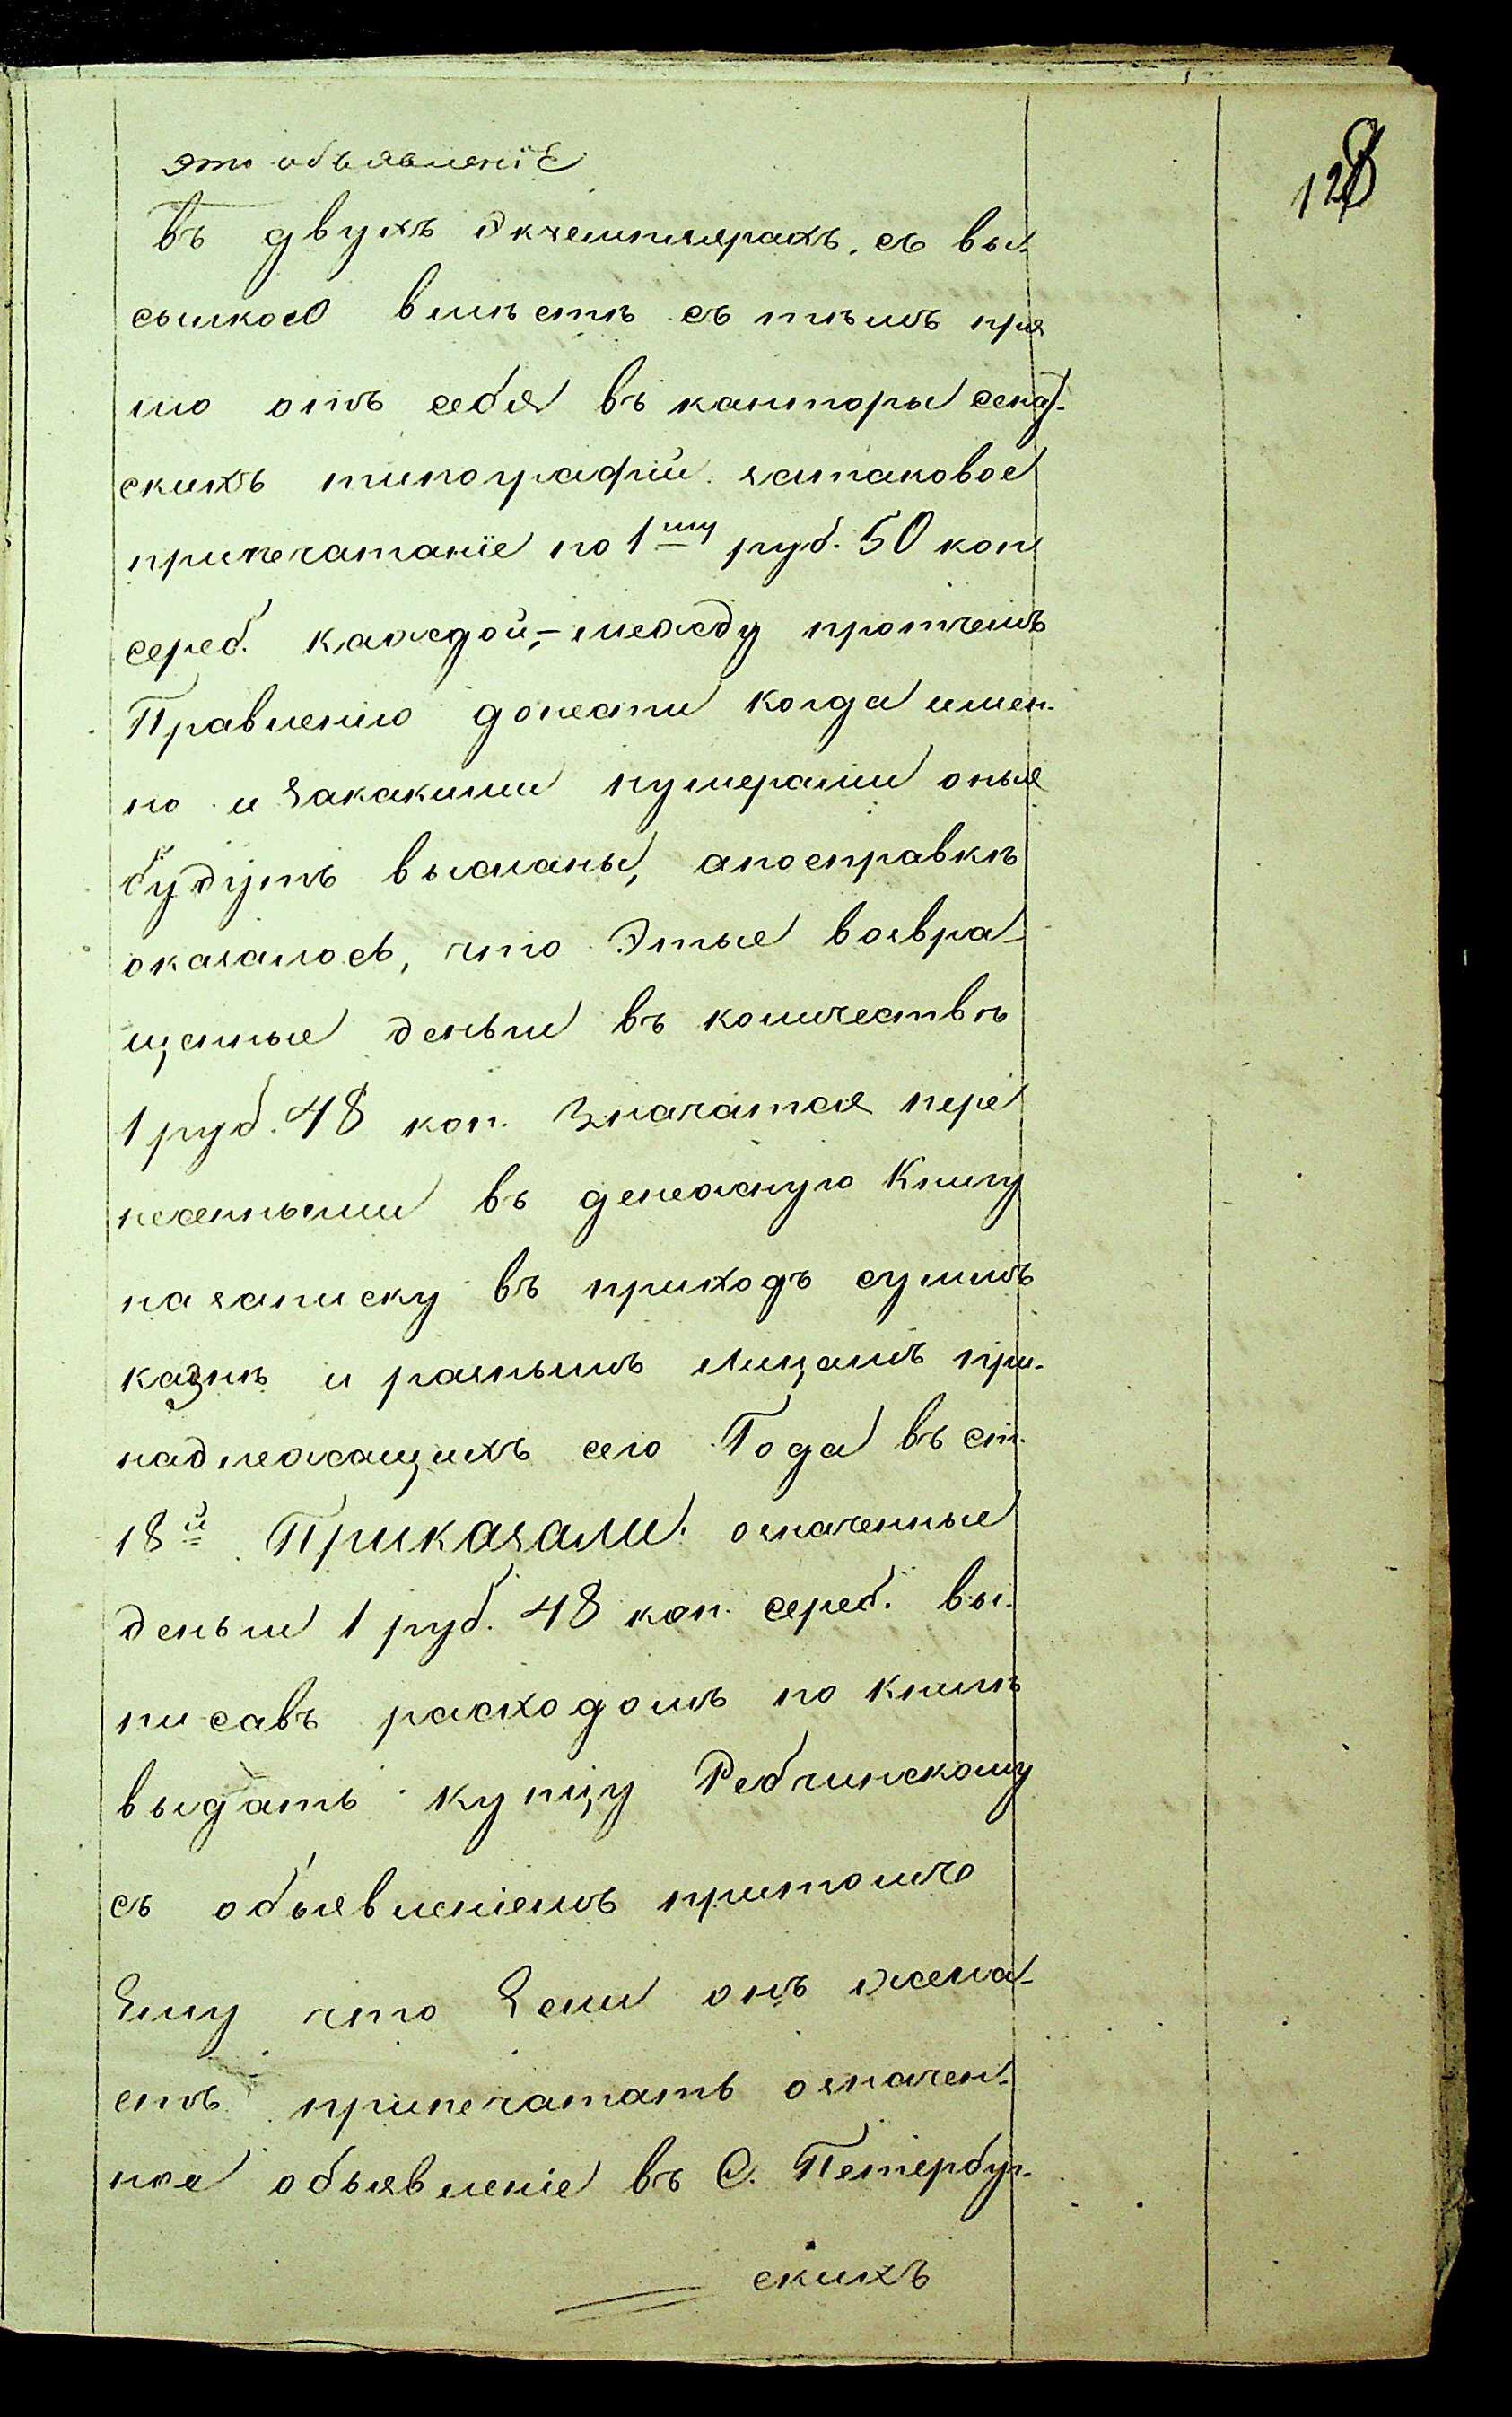 128
это объявленіе
въ двухъ Экземплярахъ, съ вы-
сылкою вмѣстѣ съ тѣмъ пря
мо отъ себя въ канторы сенат-
скихъ типографій затаковое
припечатаніе по 1му руб. 50 коп
сереб. каждой, - между протчемъ
Правленію донести когда имен-
но и закакими нумерами оные
будутъ высланы, апосправкѣ
оказалось, что Этые возвра-
щенные деньги въ количествѣ
1 руб. 48 коп. Значатся пере
несенными въ денежную Книгу
назаписку въ приходъ суммъ
казнѣ и разнымъ лицамъ при-
надлежащихъ сего Года въ ст.
18й Приказали: означенные
деньги 1 руб. 48 коп. сереб. вы-
писавъ расходомъ по книгѣ
выдать купцу Ребчинскому
съ объявленіемъ притомъ
Ему что Если онъ жела-
етъ припечатать означен-
ное объявленіе въ С. Петербур-
скихъ